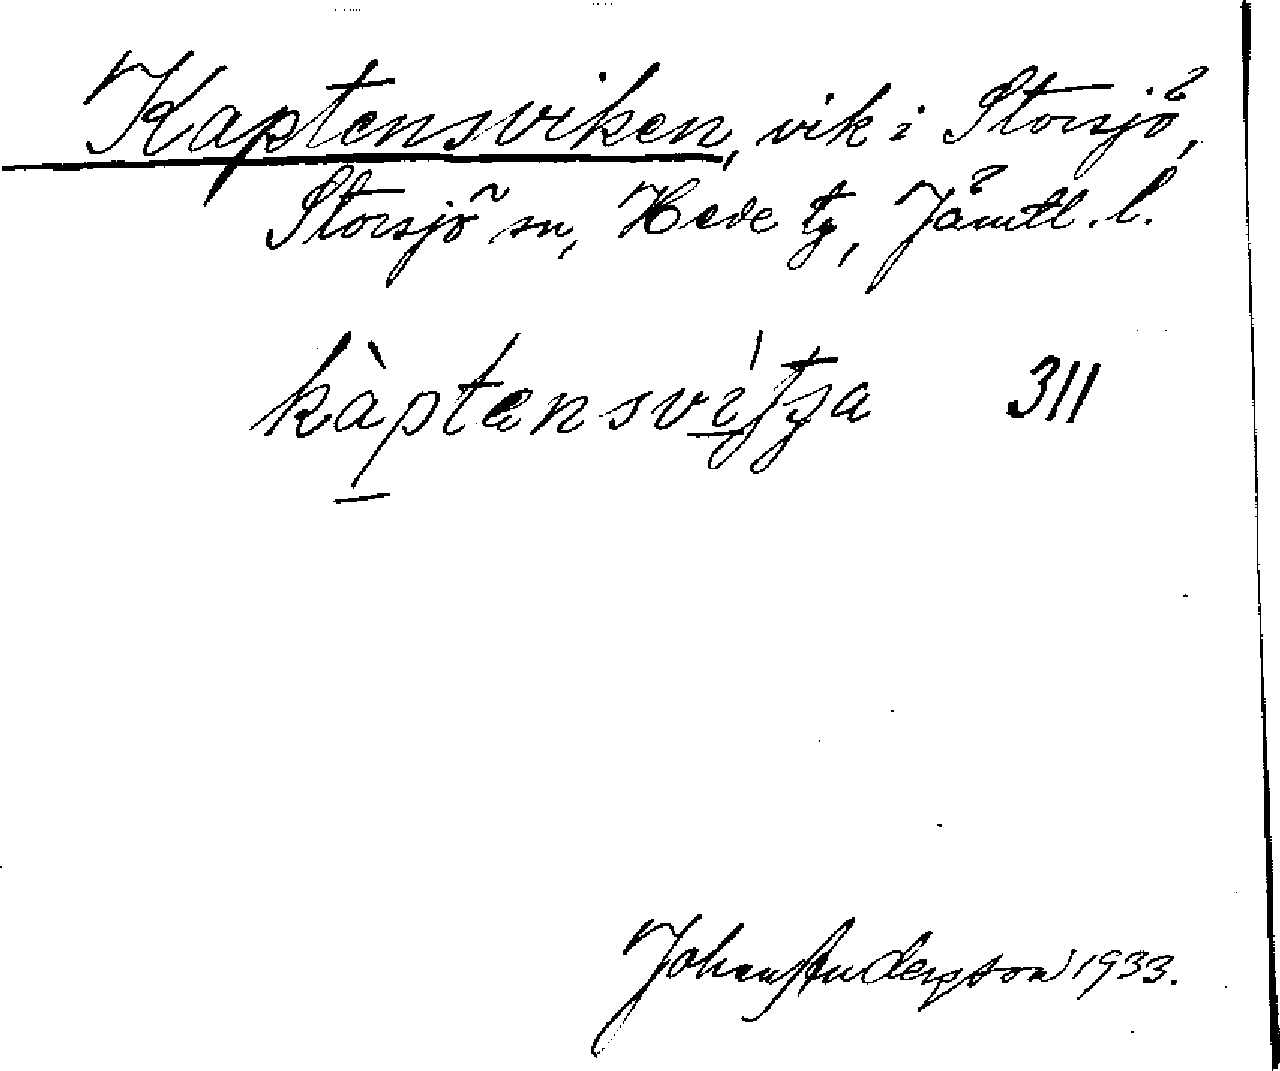 Kaptensviken, vik i Storsjö,
Storsjö sn, Hede tg, Jämtl. l.
311
Johan Andersson 1933.